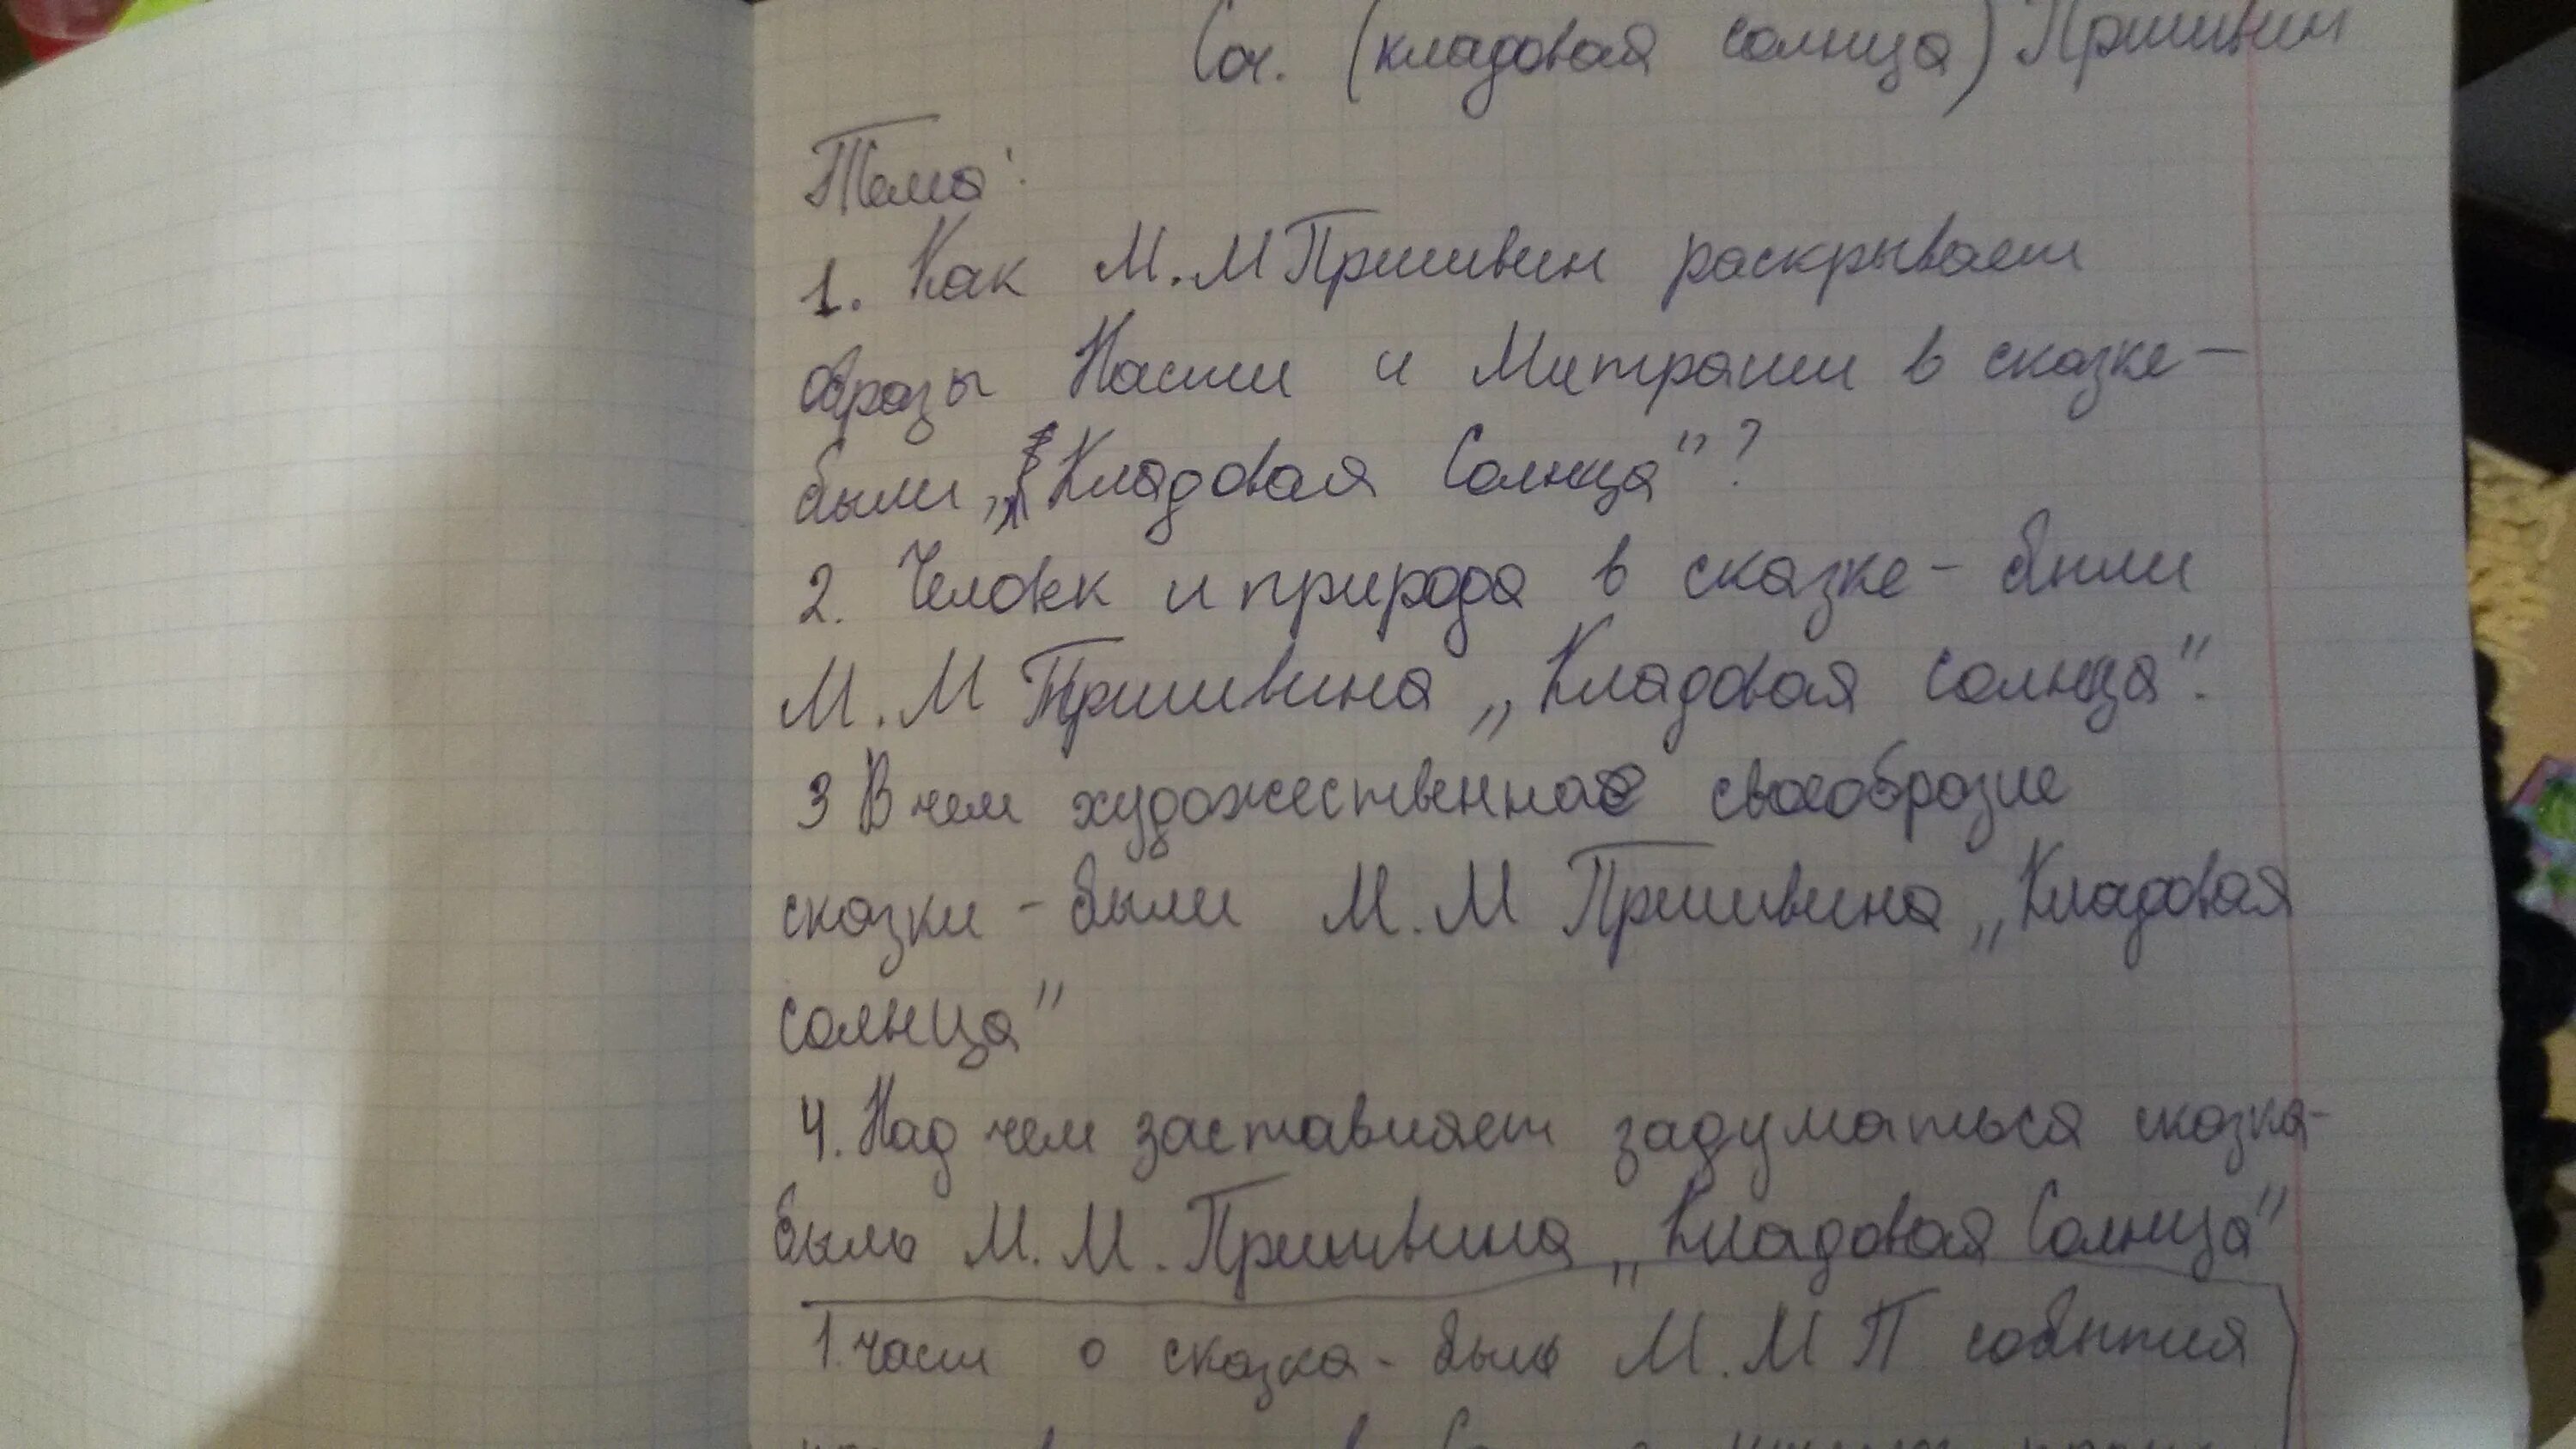 Соч. (кладовая солнца) Пришвин
Тема:
1. Как М.М Пришвин раскрывает
образы Насти и Митраши в сказке-
были „Кладовая Солнца"?
2. Человек и природа в сказке - были
М.М Пришвина „Кладовая солнца".
3 В чем художественное своеобразие
сказки - были М.М Пришвина „Кладовая
солнца"
4. Над чем заставляет задуматься сказка-
быль М.М. Пришвина „Кладовая Солнца"
1. части о сказка - быль М.М П события